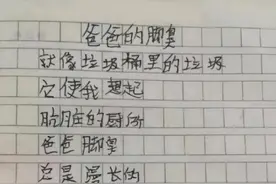 爸爸的脚臭
就像垃圾桶里的垃圾
它使我想起
肮脏的厕所
爸爸脚臭
总是漫长的